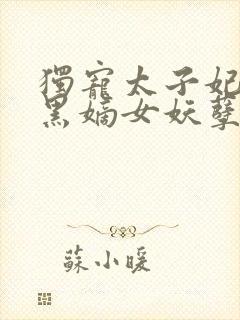 獨寵太子妃
黑嫡女妖孽
蘇小暖